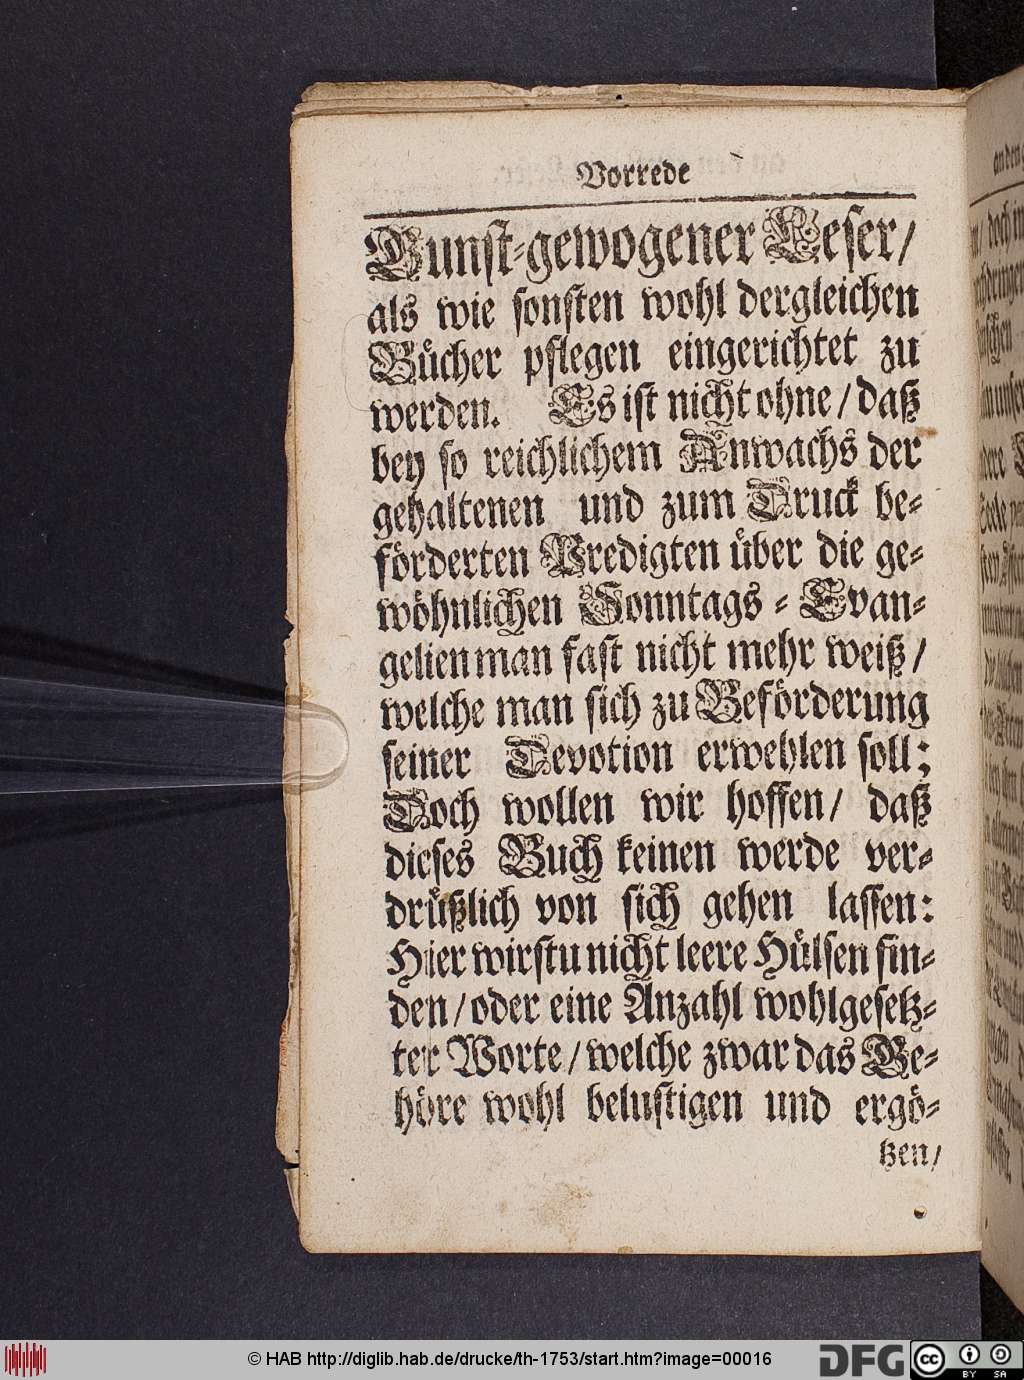 Vorrede
Gunst-gewogener Leser/
als wie sonsten wohl dergleichen
Bücher pflegen eingerichtet zu
werden. Es ist nicht ohne / daß
bey so reichlichem Anwachs der
gehaltenen und zum Druck be-
förderten Predigten über die ge-
wöhnlichen Sonntags - Evan-
gelien man fast nicht mehr weiß /
welche man sich zu Beförderung
seiner Devotion erwehlen soll;
Doch wollen wir hoffen/ daß
dieses Buch keinen werde ver-
drüßlich von sich gehen lassen:
Hier wirstu nicht leere Hülsen fin-
den / oder eine Anzahl wohlgesetz-
ter Worte / welche zwar das Ge-
höre wohl belustigen und ergö-
tzen/
© HAB http://diglib.hab.de/drucke/th-1753/start.htm?image=00016
DFG
cc BY SA